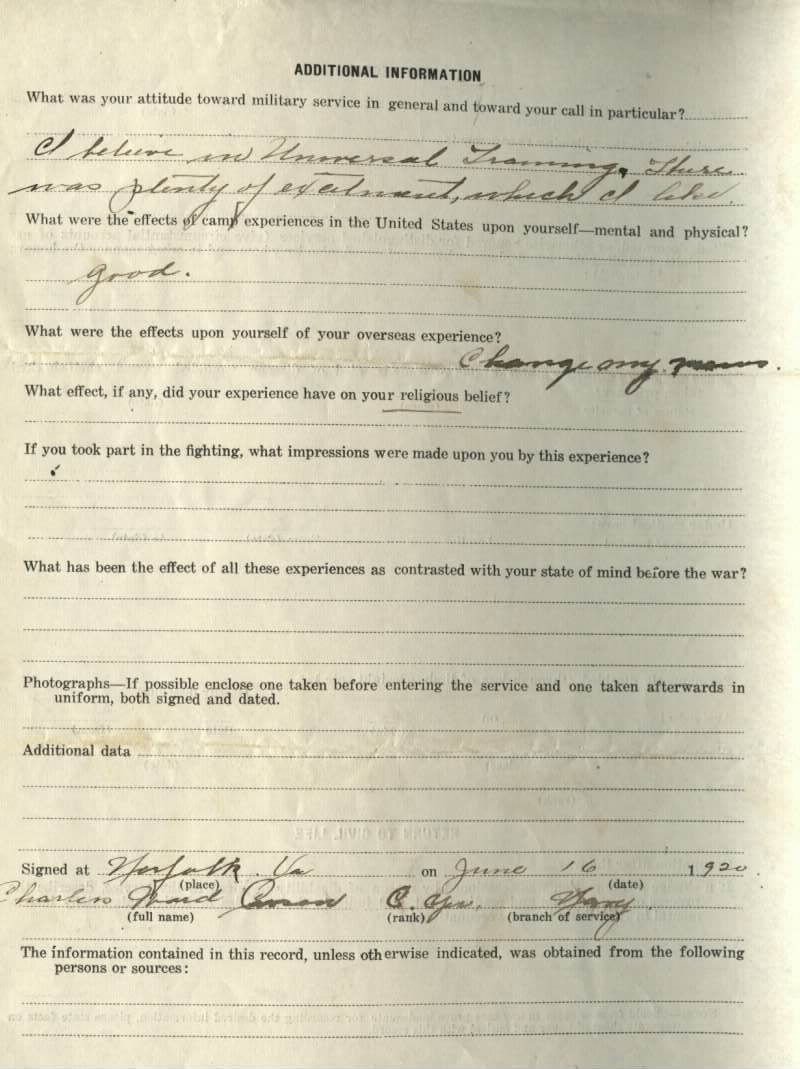 ADDITIONAL INFORMATION
What was your attitude toward military service in general and toward your call in particular?
I believe in Universal Training. There
was plenty of excitment, which I like.
What were the effects of camp experiences in the United States upon yourself—mental and physical?
good.
What were the effects upon yourself of your overseas experience?
Change my
What effect, if any, did your experience have on your religious belief?
If you took part in the fighting, what impressions were made upon you by this experience?
What has been the effect of all these experiences as contrasted with your state of mind before the war?
Photographs—If possible enclose one taken before entering the service and one taken afterwards in
uniform, both signed and dated.
Additional data
Signed at Norfolk Va on June 16 1920.
(place) (date)
Charles Ward C. Navy.
(full name) (rank) (branch of service)
The information contained in this record, unless otherwise indicated, was obtained from the following
persons or sources: